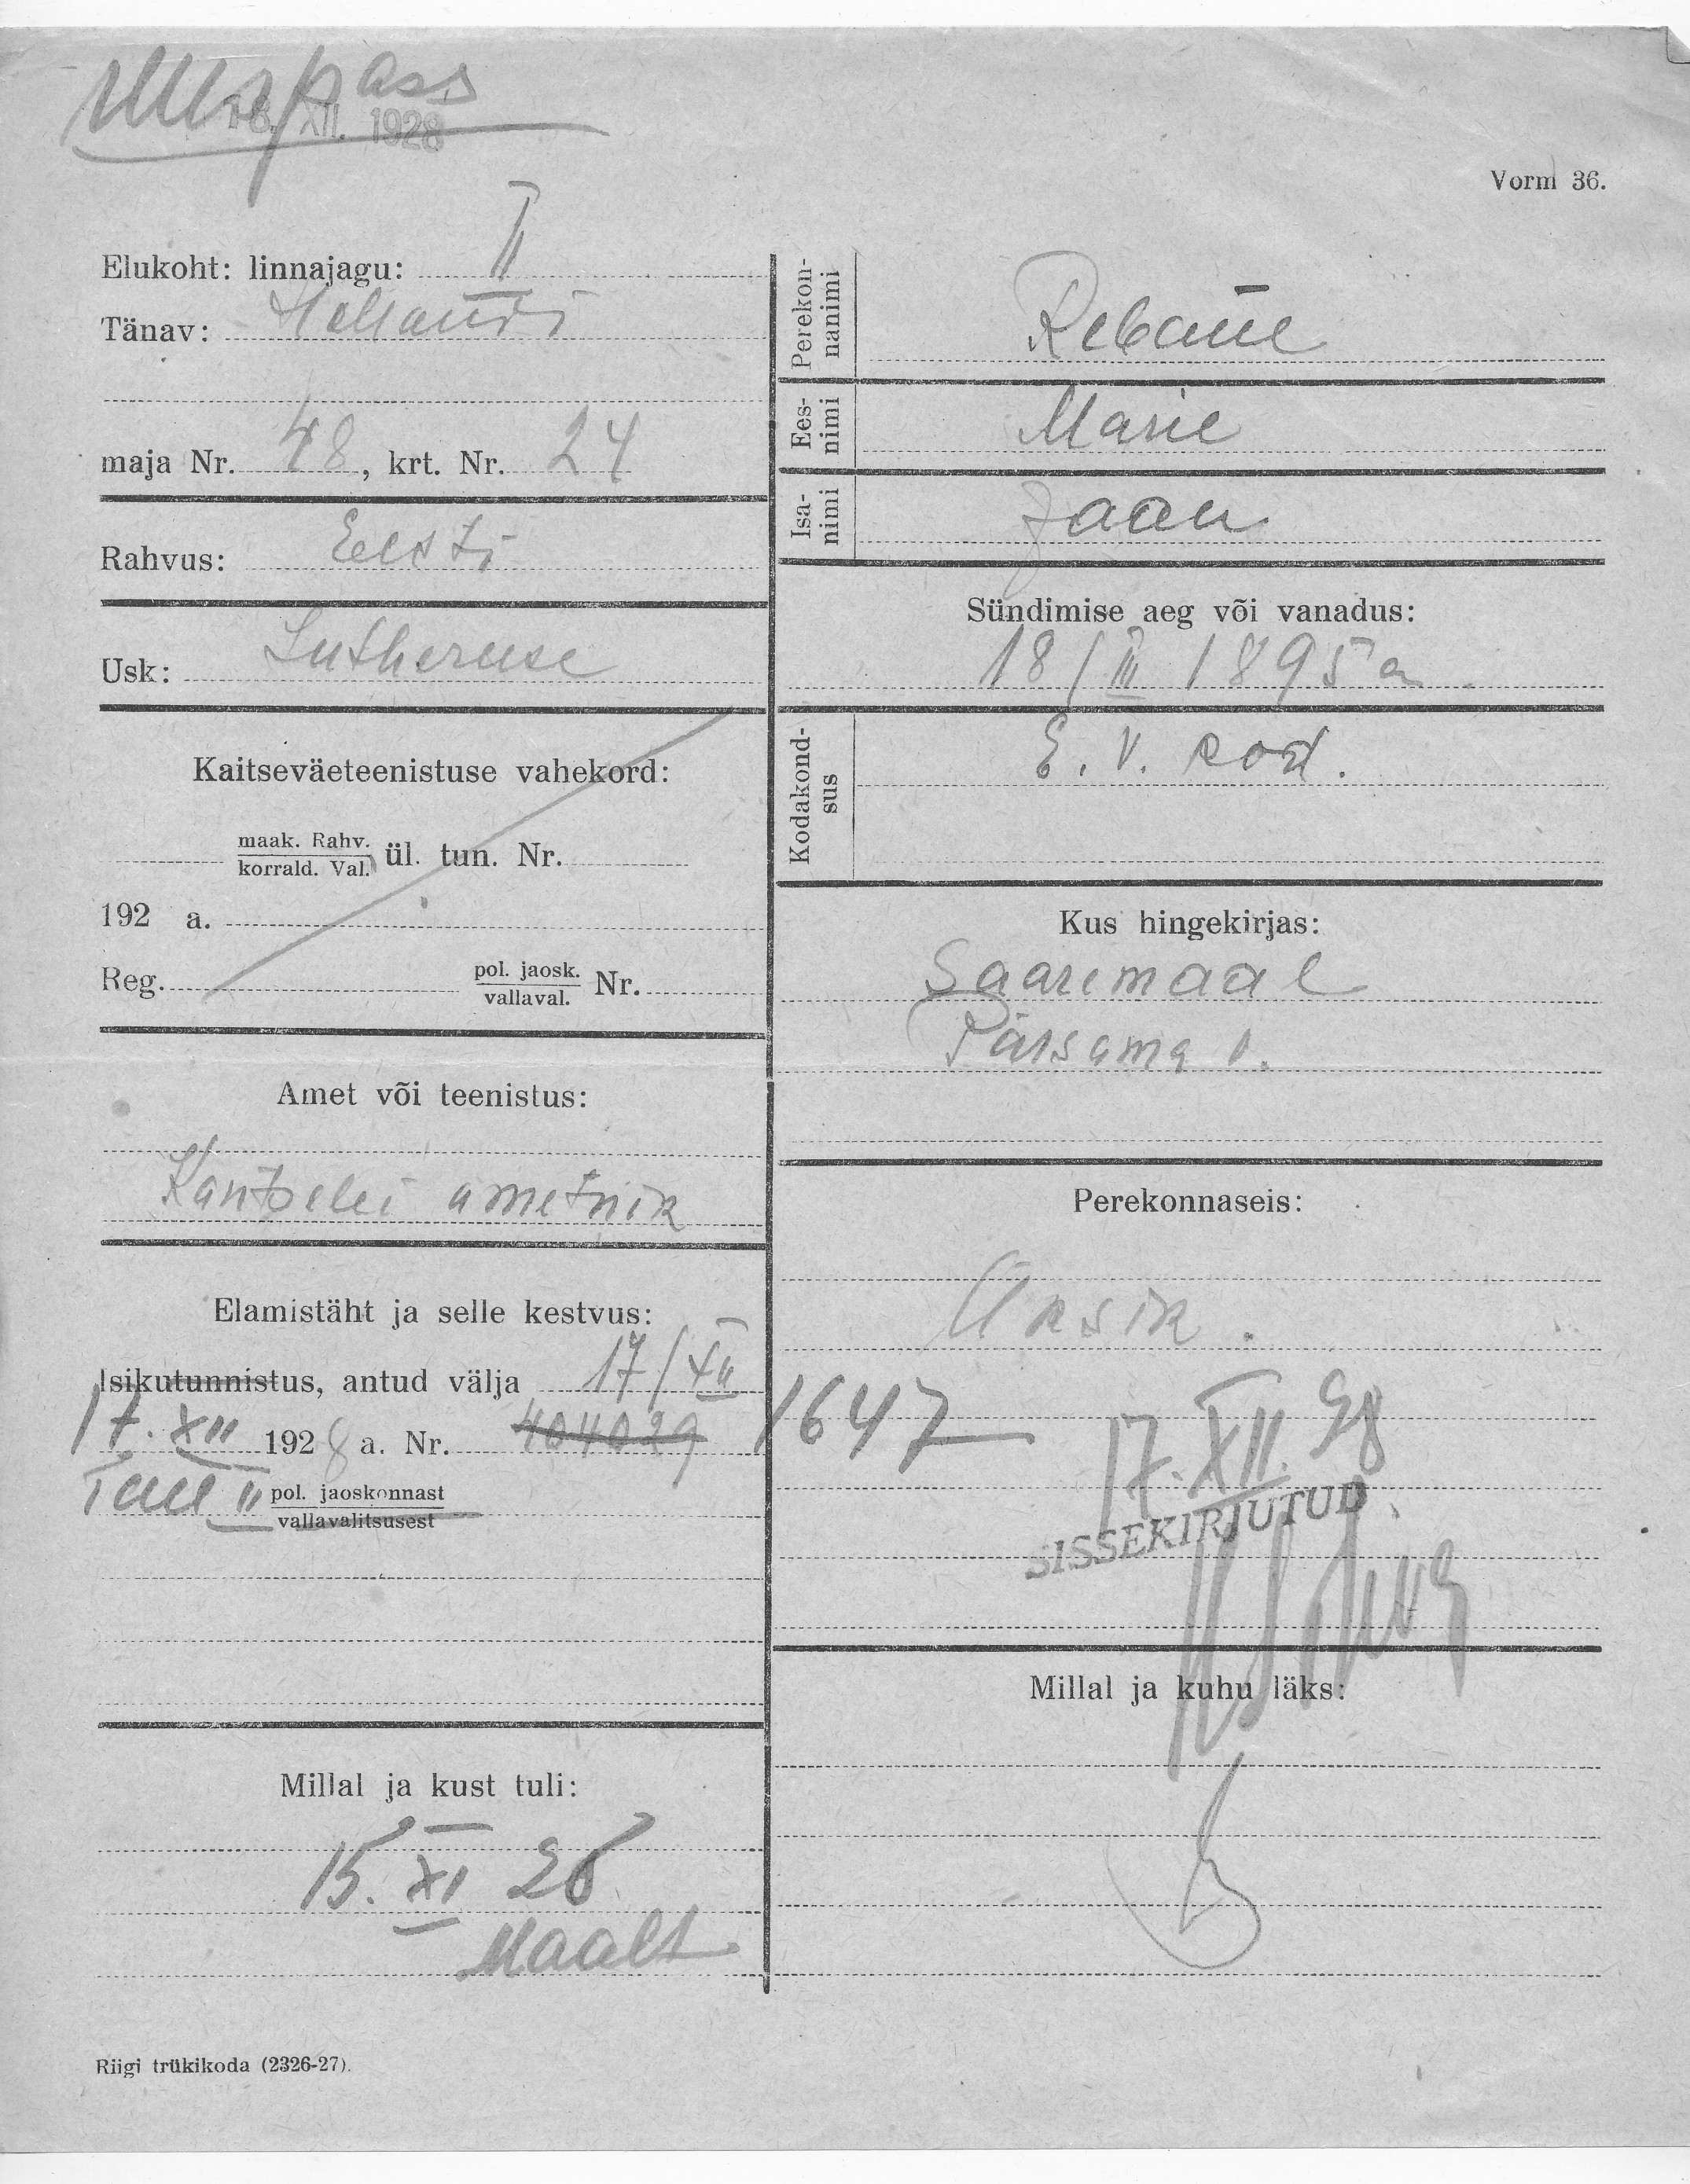 pass
18. XII. 1928
Vorm 36.
Elukoht: linnajagu: II
Tänav:
maja Nr. 48, krt. Nr. 24
Rahvus: Eesti
Usk: Lutheruse
Kaitseväeteenistuse vahekord:
maak. Rahv.
korrald. Val. ül. tun. Nr.
192 a.
Reg. pol. jaosk.
vallaval. Nr.
Amet või teenistus:
Kantselei ametnik
Elamistäht ja selle kestvus:
Isikutunnistus, antud välja 17/XII
17. XII 1928 a. Nr. 404029 1647
Tall II pol. jaoskonnast
vallavalitsusest
Millal ja kust tuli:
15. XI 28
Maalt
Riigi trükikoda (2326-27).
Perekon-
nanimi
Rebane
Ees-
nimi
Marie
Isa-
nimi
Jaan
Sündimise aeg või vanadus:
18/III 1895 a.
Kodakond-
sus
E. V. kod.
Kus hingekirjas:
Saaremaal
Pärsama v.
Perekonnaseis:
Üksik.
17. XII. 28
SISSEKIRJUTUD
Millal ja kuhu läks: